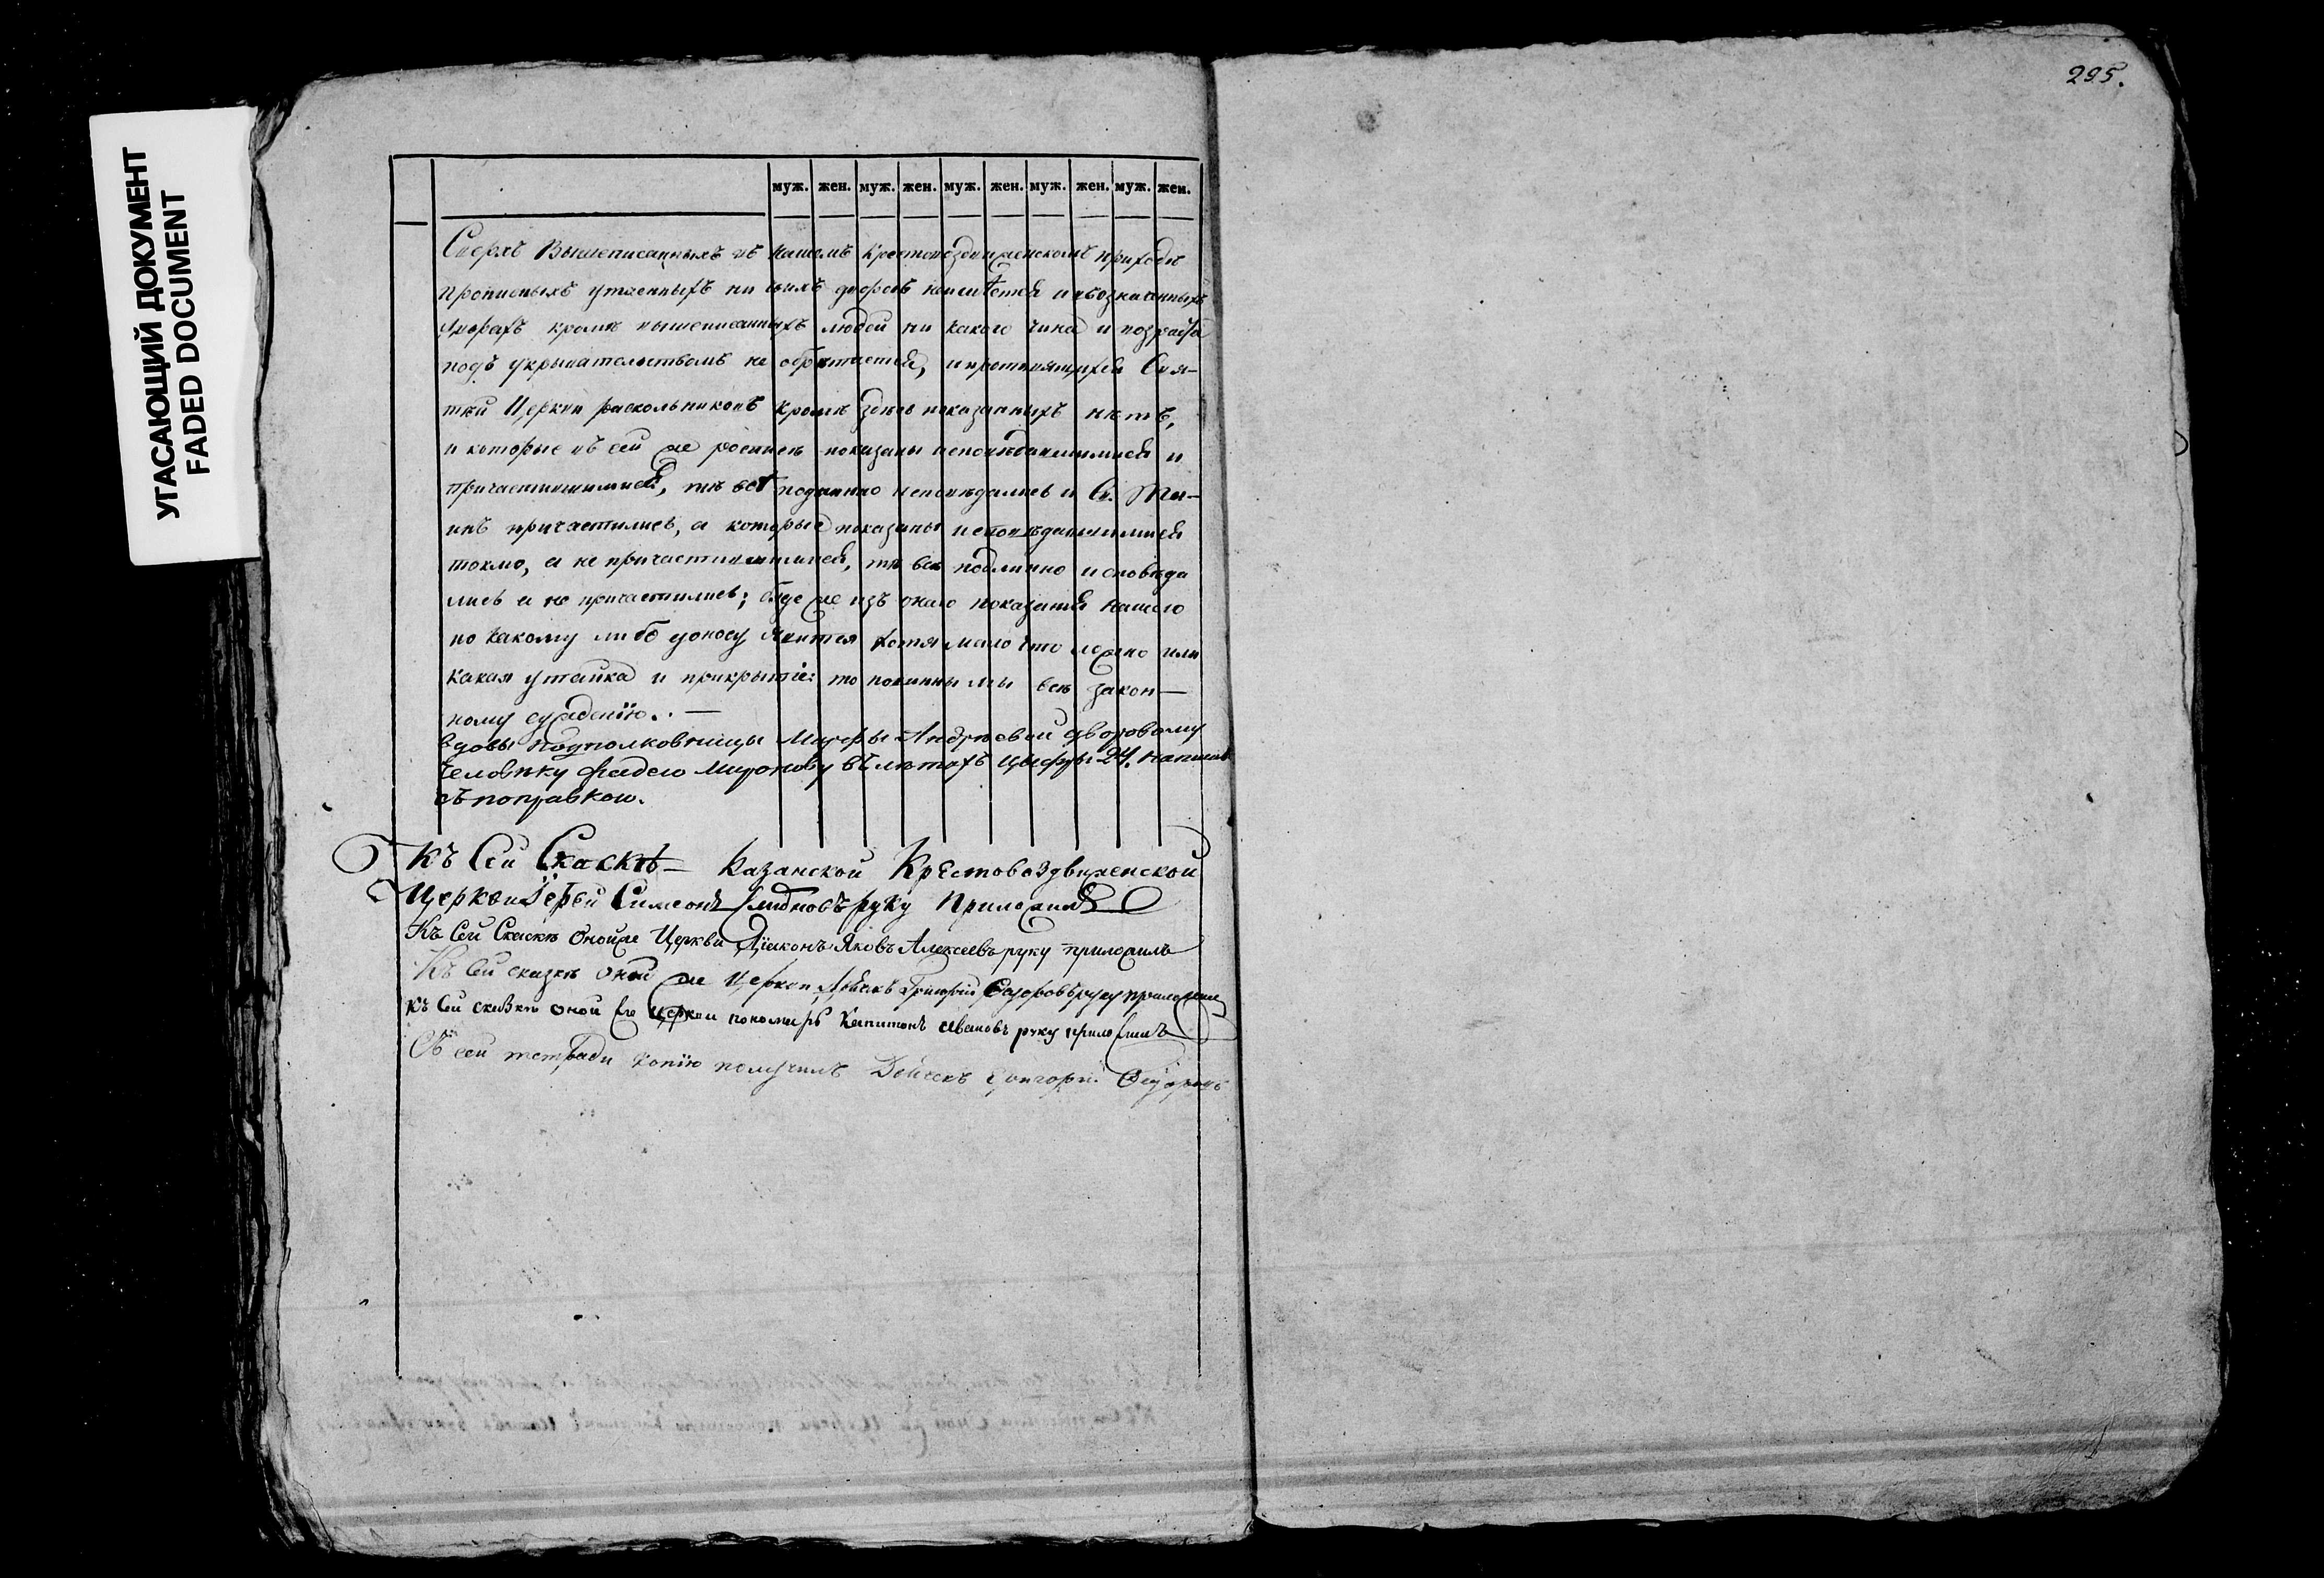 295.
УГАСАЮЩИЙ ДОКУМЕНТ
FADED DOCUMENT
муж. жен. муж. жен. муж. жен. муж. жен. муж. жен.
Сверхъ вышеписанныхъ въ нашемъ Крестовоздвиженскомъ приходѣ
прописныхъ утаенныхъ ни чьихъ дворовъ неимѣется и въозначенныхъ
дворахъ кромѣ вышеписанныхъ людей ни какого чина и возраста
подъ укрывательствомъ не обрѣтается, и противящихся Свя-
тѣй Церкви раскольниковъ кромѣ здѣсь показанныхъ нѣтъ,
и которые въ сей же росписи показаны исповѣдавшимися и
причастившимися, тѣ всѣ подлинно исповѣдались и Св. Та-
инъ причастились, а которые показаны исповѣдавшимися
токмо, а не причастившимися, тѣ всѣ подлинно исповѣда
лись а не причастились; буде же изъ онаго показанія нашего
по какому либо доносу явится хотя мало что ложно или
какая утайка и прикрытіе: то повинны мы всѣ закон-
ному сужденію. . —
вдовы подполковницы Марфы Андрѣевой дворовому
человѣку Фадею Миронову въ лѣтахъ цыфры 24. написан
съ поправкою.
Къ сей Скаскѣ Казанской Крестовоздвиженской
Церкви Іерей Симеонъ руку приложилъ
Къ сей Скаскѣ оной же Церкви Діаконъ Яковъ Алексеевъ руку приложилъ
Къ сей сказкѣ оной же Церкви Дьячекъ Григорій Ѳедоровъ руку приложилъ
Къ сей сказкѣ оной же церкви пономарь Капитонъ Ивановъ руку приложилъ
Съ сей тетради копію получилъ Дьячекъ Григорій Ѳедоровъ